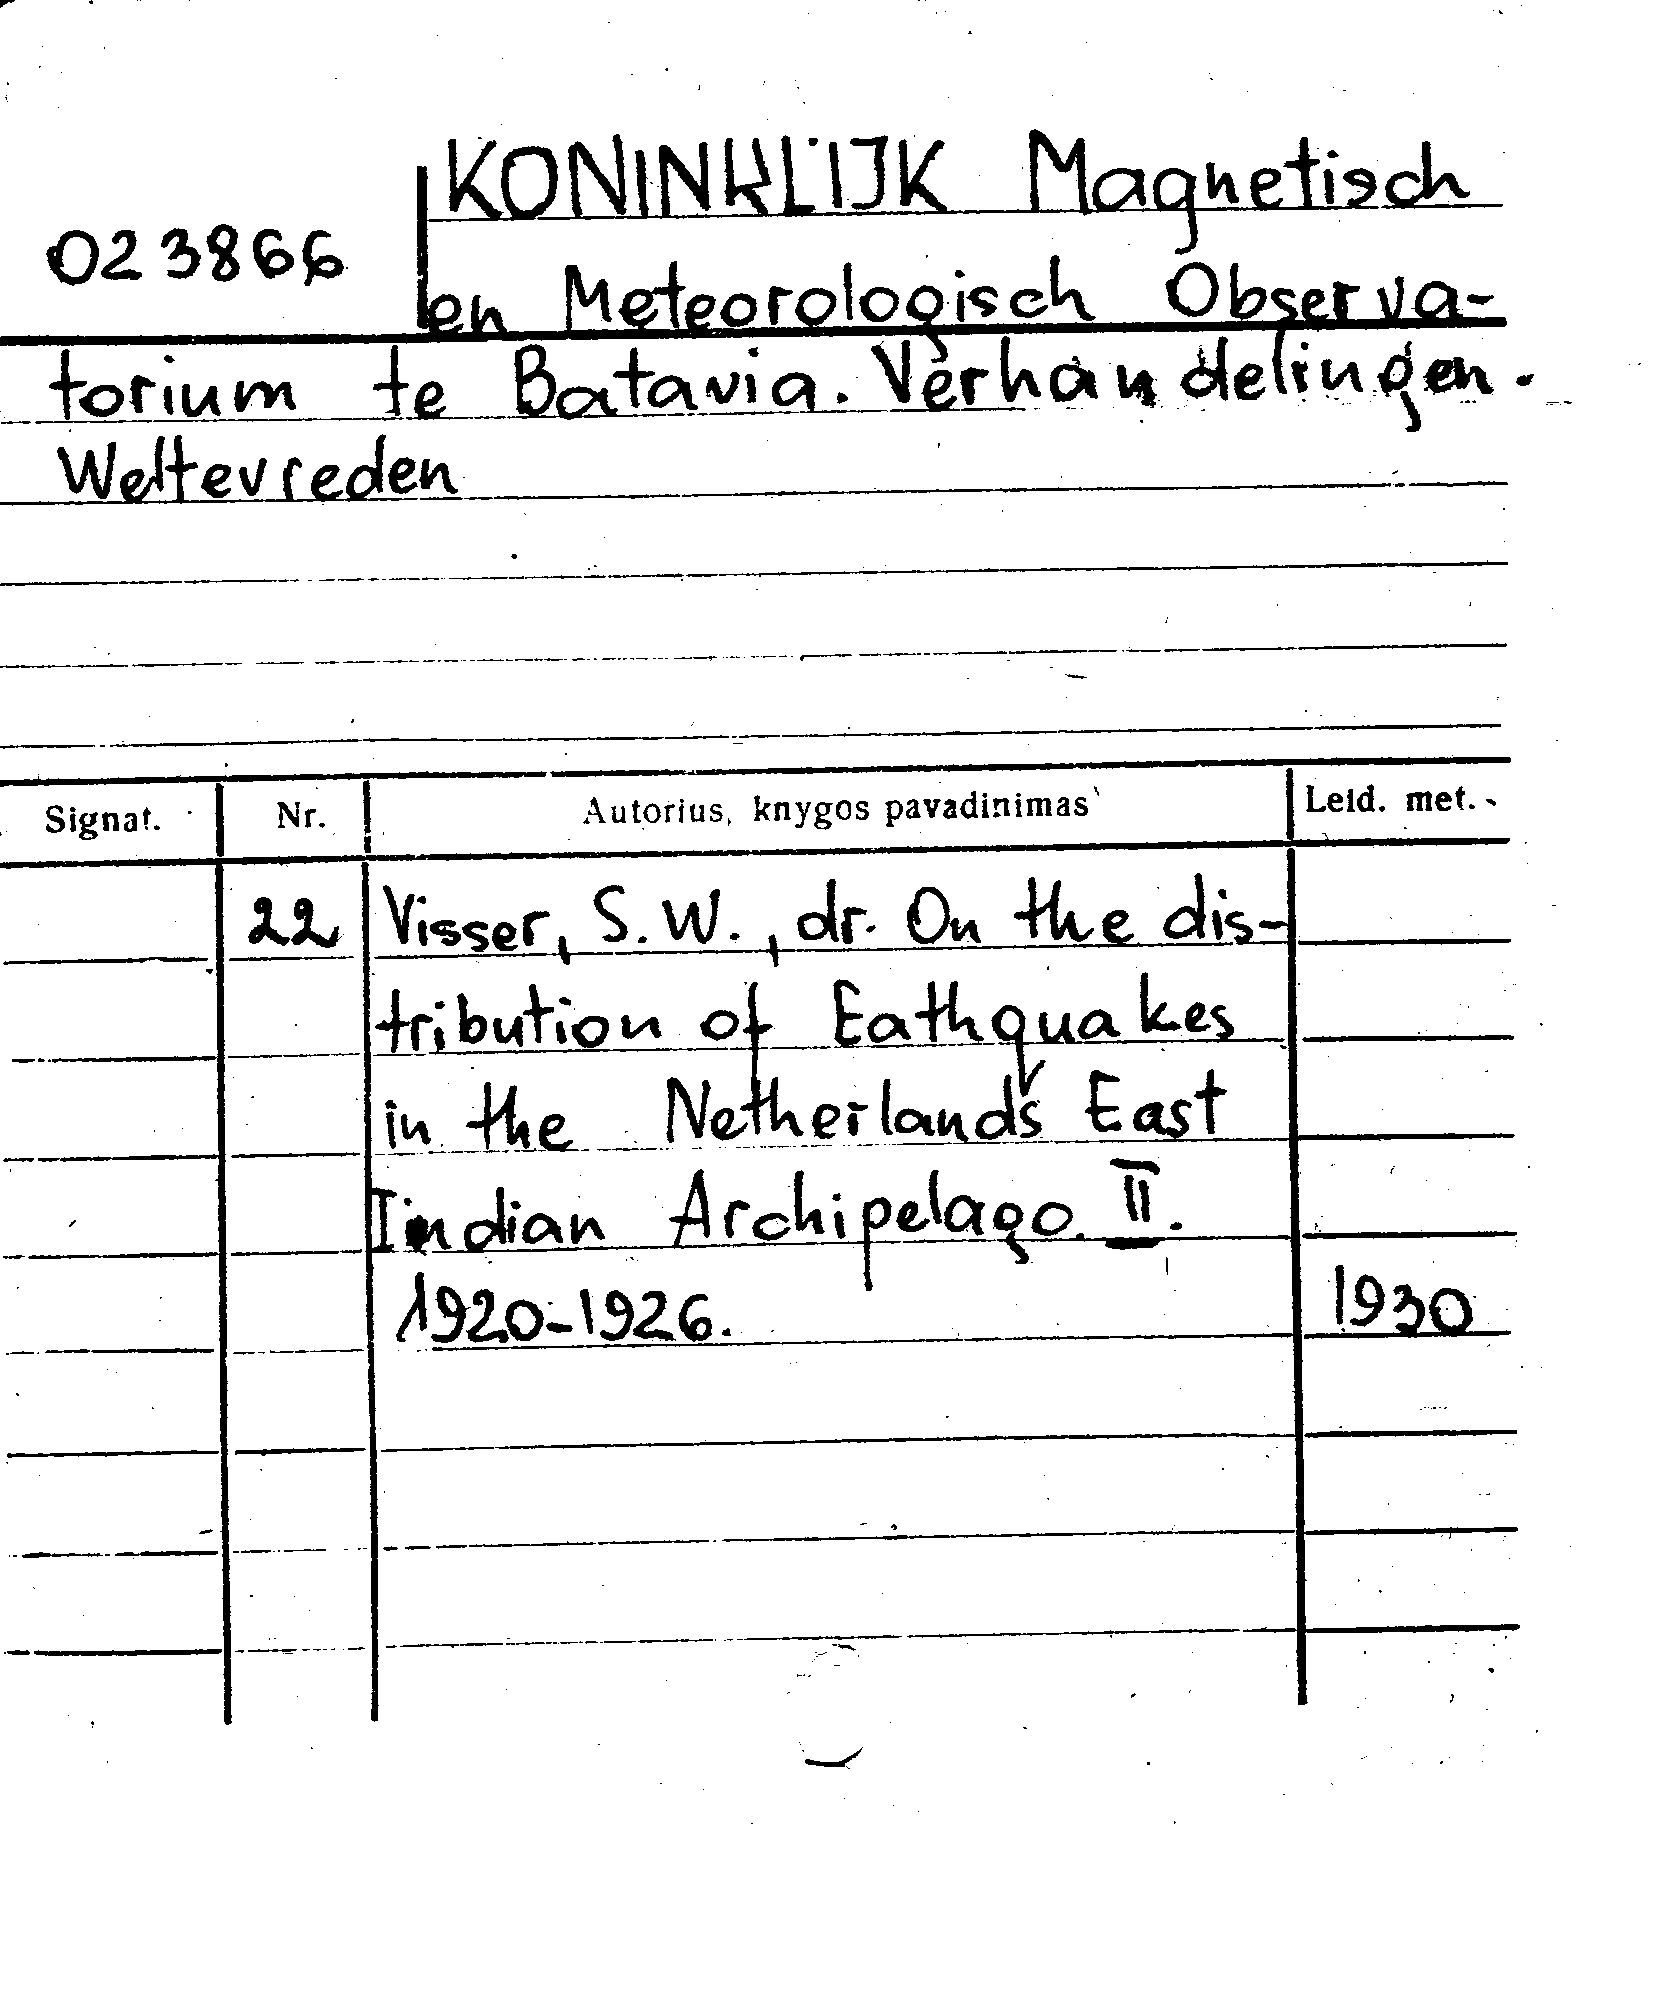 KONINKLIJK Magnetisch
023866
en Meteorologisch Observa-
torium te Batavia. Verhandelingen.
Weltevreden
Signat. Nr. Autorius, knygos pavadinimas Leid. met.
22 Visser, S.W., dr. On the dis-
tribution of Eathquakes
in the Netherlands East
Indian Archipelago. II.
1920-1926. 1930